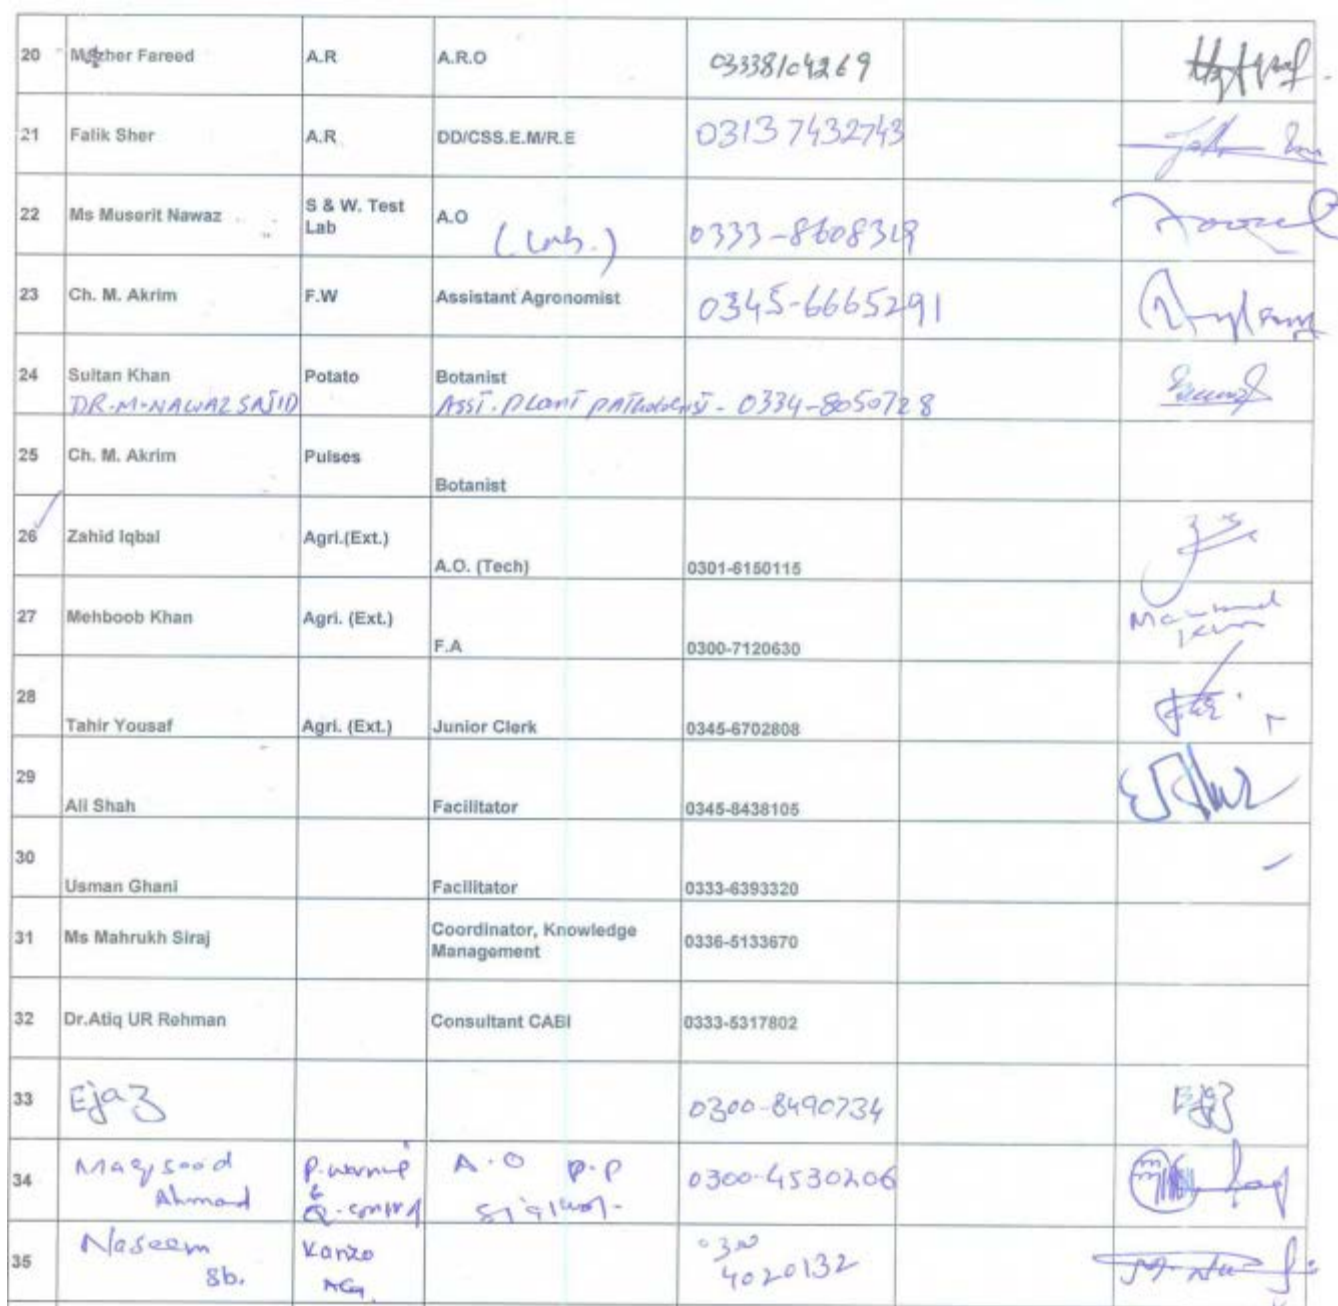 20 Mazher Fareed A.R A.R.O 03338104269
21 Falik Sher A.R DD/CSS.E.M/R.E 03137432743
22 Ms Muserit Nawaz S & W. Test A.O
Lab (Lab.) 0333-8608319
23 Ch. M. Akrim F.W Assistant Agronomist 0345-6665291
24 Sultan Khan Potato Botanist
DR.M.NAWAZ SAJID ASST. PLANT PATHOLOGIST - 0334-8050728
25 Ch. M. Akrim Pulses
Botanist
26 Zahid Iqbal Agri.(Ext.)
A.O. (Tech) 0301-6150115
27 Mehboob Khan Agri. (Ext.)
F.A 0300-7120630
28
Tahir Yousaf Agri. (Ext.) Junior Clerk 0345-6702808
29
Ali Shah Facilitator 0345-8438105
30
Usman Ghani Facilitator 0333-6393320
31 Ms Mahrukh Siraj Coordinator, Knowledge
Management 0336-5133670
32 Dr.Atiq UR Rehman Consultant CABI 0333-5317802
33 Ejaz 0300-8490734 Ejaz
34 Maqsood P. A.O P.P 0300-4530206
Ahmad & Q.
35 Naseem Kanzo 0300
Sb. AG 4020132